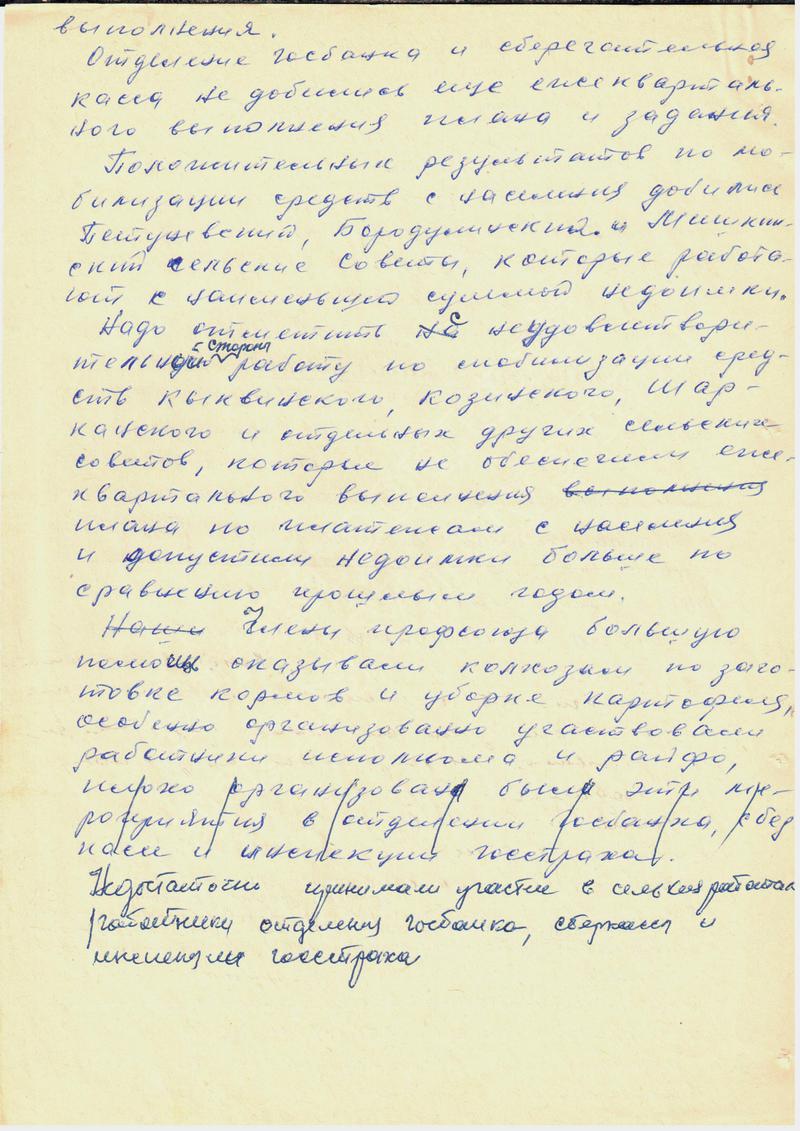 выполнения.
Отделение госбанка и сберегательная
касса не добились еще ежекварталь-
ного выполнения плана и задания.
Положительных результатов по мо-
билизации средств с населения добились
Петуневский, Бородулинский и Мишкин-
ский сельские Советы, которые работа-
ют с наименьшей суммой недоимки.
Надо отметить с неудовлетвори-
тельной стороны работу по мобилизации сред-
ств Кыквинского, Козинского, Шар-
канского и отдельных других сельских
советов, которые не обеспечили еже-
квартального выполнения выполнения
плана по платежам с населения
и допустили недоимки больше по
сравнению прошлым годом.
Наши Члены профсоюза большую
помощь оказывали колхозам по заго-
товке кормов и уборке картофеля,
особенно организованно участвовали
работники исполкома и райфо,
плохо организованы были эти ме-
роприятия в отделении госбанка, сбер
кассе и инспекции госстраха.
Недостаточно принимали участие в сельхозработах
работники отделения госбанка, сберкассы и
инспекции госстраха